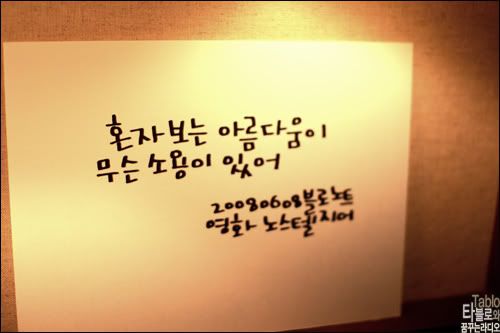 혼자 보는 아름다움이
무슨 소용이 있어
20080608 블로노트
영화 노스텔지어
Tablo
타블로와
꿈꾸는라디오